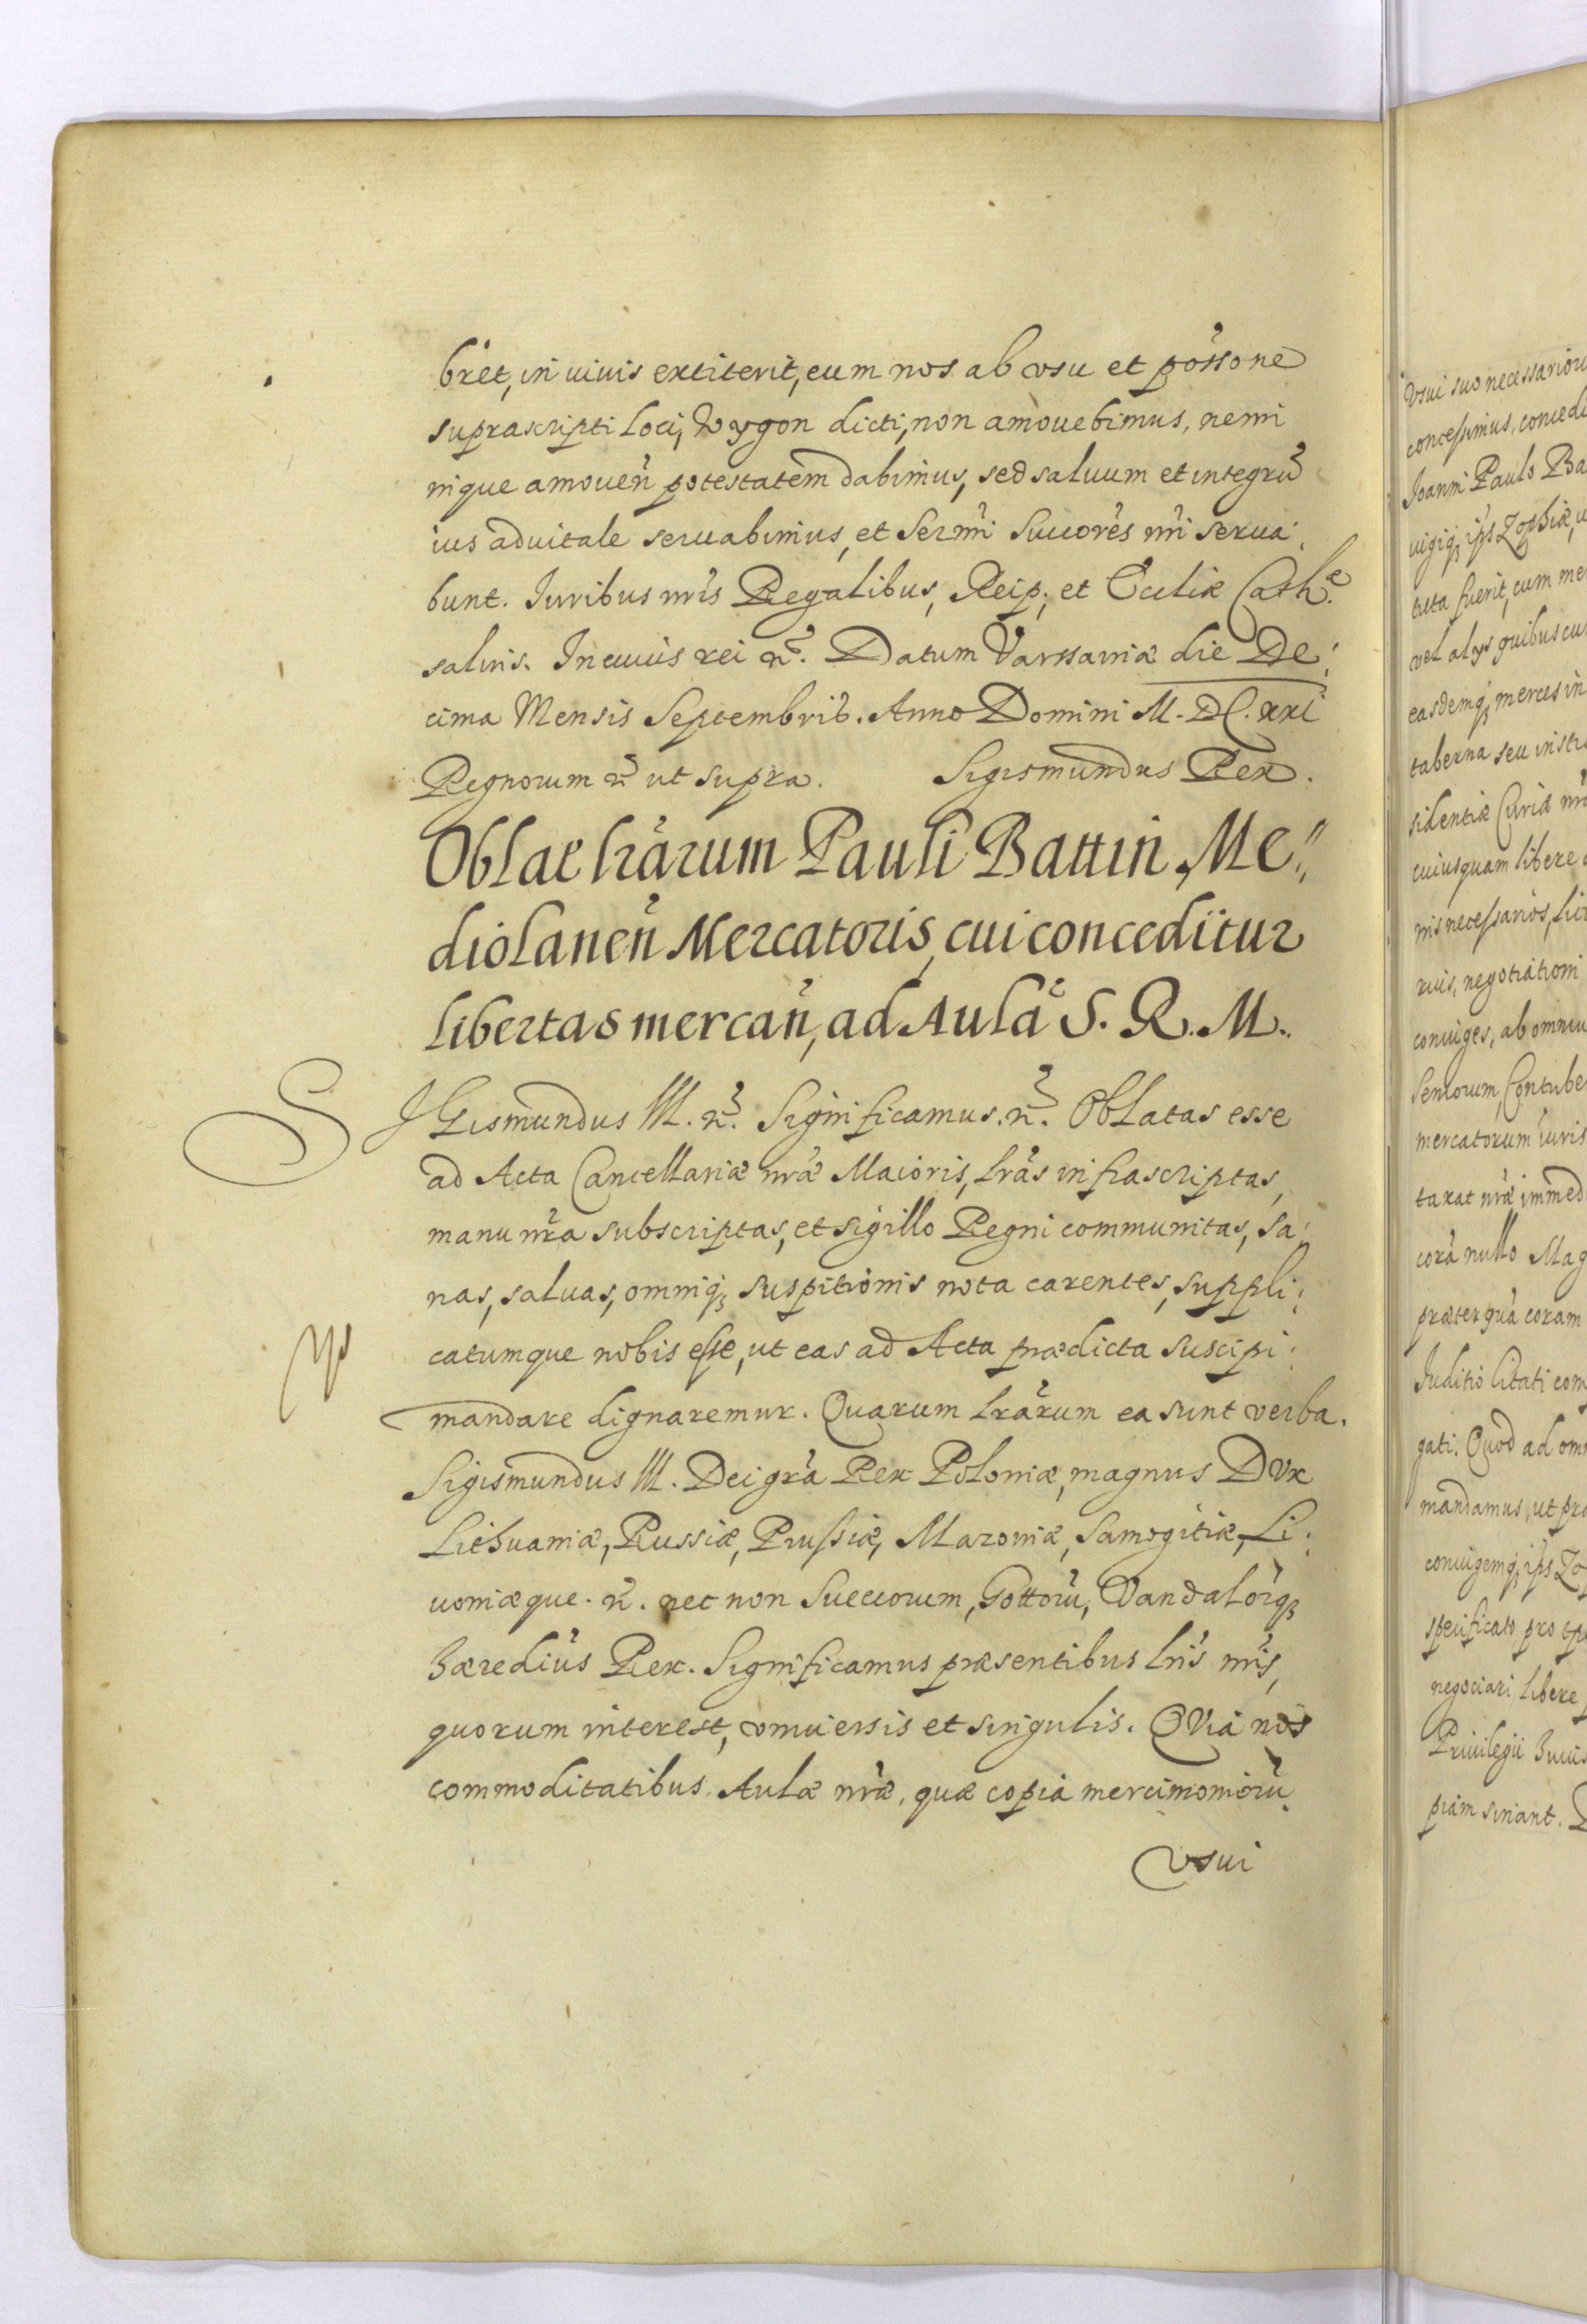 bret, in uiuis extiterit, eum nos ab vsu et possone
suprascripti loci, Wygon dicti, non amouebimus, nemi
nique amouen̄ potestatem dabimus, sed saluum et integrū
ius aduitale seruabimus, et Serm̄i Succores nr̄i serua:
bunt. Iuribus nr̄is Regalibus, Reip; et Eccliæ Cath.e
saluis. In cuius rei &. Datum Varssauiæ die De:
cima Mensis Septembris. Anno Domini M.DC.XXI
Regnorum & ut supra. Sigismundus Rex.
Oblae lrārum Pauli Battin Me:
diolanen̄ Mercatoris, cui conceditur
libertas mercan̄, ad Aulā S. R. M.
SIGismundus III. &. Significamus. &. Oblatas esse
ad Acta Cancellariæ nrǣ Maioris, lrās infrascriptas,
manu nrā subscriptas, et sigillo Regni communitas, sa:
nas, saluas, omniq; suspitionis nota carentes, suppli:
catumque nobis esse, ut eas ad Acta prædicta suscipi:
mandare dignaremur. Quarum lrārum ea sunt verba.
Sigismundus III. Dei grā Rex Poloniæ, magnus DVx
Lithuaniæ, Russiæ, Prussiæ, Mazoniæ, Samogitiæ, Li:
uoniæque. &. nec non Sueccorum, Gottorū, Vandalorq;
hærediūs Rex. Significamus præsentibus lrīs nrīs,
quorum interest, vniuersis et singulis. QVia nos
commoditatibus Aulæ nrǣ, quæ copia mercimoniorū
vsui
vsui suo necessarioru
concessimus, concedi
Joanni Paulo Ba
tuta fuerit, cum me
vel alys quibuscu
easdemq; merces in
taberna seu instr
sidentiæ Curiæ nr̄
cuiusquam libere
nis necessarios, lic
ruis, negotiationi
coniuges, ab omniu
Seniorum, Contube
mercatorum iuris
taxat nrǣ immed
corā nullo Mag
præterquā coram
Iuditio Citati com
gati. Quod ad om
mandamus, ut pro
coniugemq; ips Zo
specificato pro tp
negociari libere
Priuilegii huius
piam sinant.